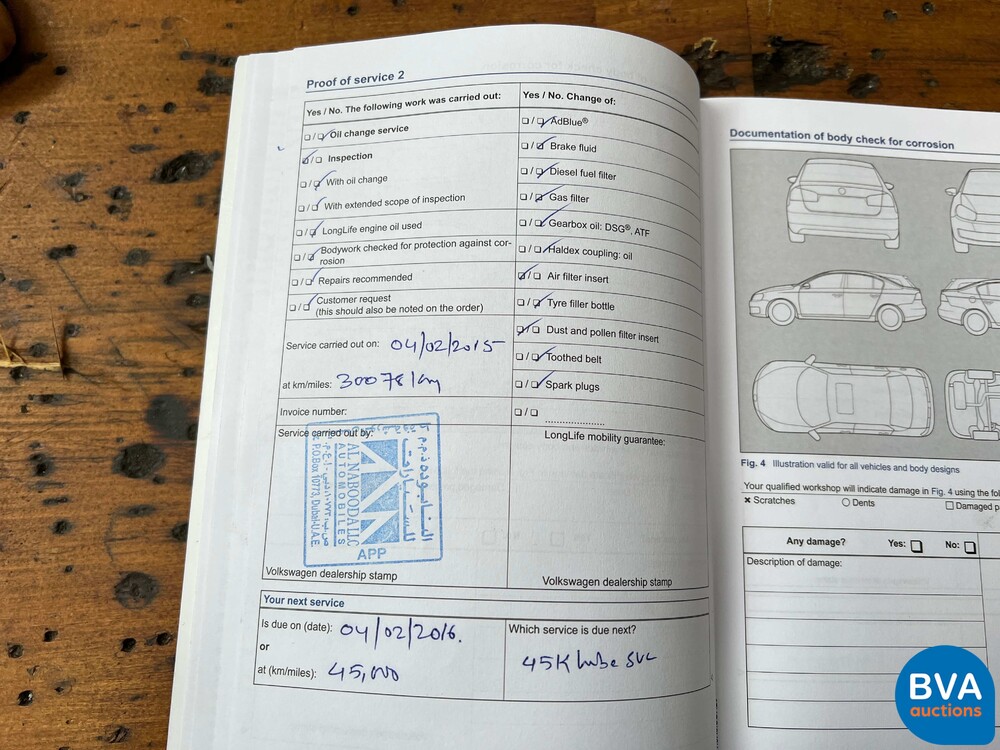 Proof of service 2
Yes / No. The following work was carried out:
❏ / ❏ Oil change service
❏ / ❏ Inspection
❏ / ❏ With oil change
❏ / ❏ With extended scope of inspection
❏ / ❏ LongLife engine oil used
❏ / ❏ Bodywork checked for protection against cor-
rosion
❏ / ❏ Repairs recommended
❏ / ❏ Customer request
(this should also be noted on the order)
Service carried out on: 04/02/2015
at km/miles: 30078 km
Invoice number:
Service carried out by:
AL NABOODA LLC
AUTOMOBILES
P.O.Box 10773, Dubai-U.A.E.
النابوده ذ.م.م
للسيارات
APP
Volkswagen dealership stamp
Yes / No. Change of:
❏ / ❏ AdBlue®
❏ / ❏ Brake fluid
❏ / ❏ Diesel fuel filter
❏ / ❏ Gas filter
❏ / ❏ Gearbox oil: DSG®, ATF
❏ / ❏ Haldex coupling: oil
❏ / ❏ Air filter insert
❏ / ❏ Tyre filler bottle
❏ / ❏ Dust and pollen filter insert
❏ / ❏ Toothed belt
❏ / ❏ Spark plugs
❏ / ❏
....................
LongLife mobility guarantee:
Volkswagen dealership stamp
Your next service
Is due on (date): 04/02/2016.
or
at (km/miles): 45,000
Which service is due next?
45K lube svc
Documentation of body check for corrosion
Fig. 4 Illustration valid for all vehicles and body designs
Your qualified workshop will indicate damage in Fig. 4 using the
× Scratches ○ Dents □ Damaged
Any damage? Yes: ❏ No: ❏
Description of damage:
BVA
auctions